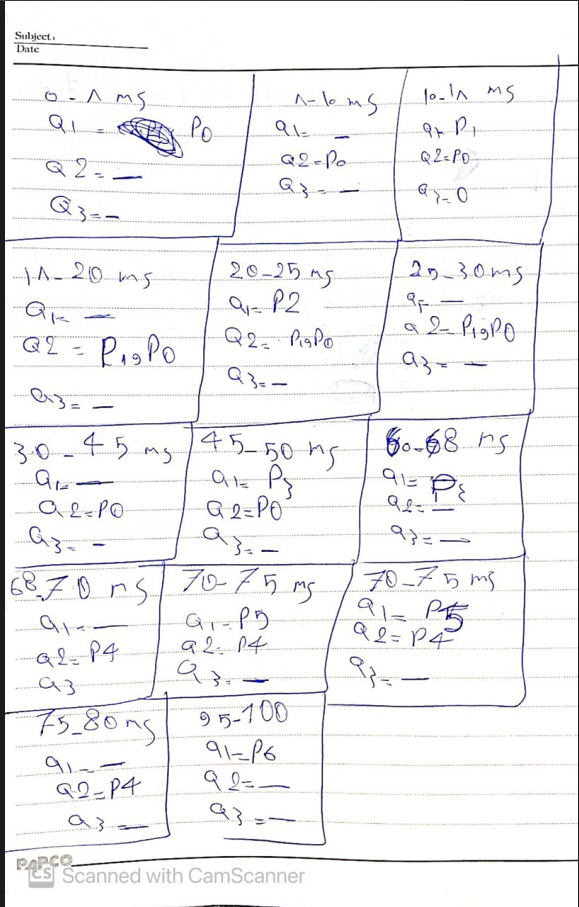 Subject:
Date
0 - ٨ ms
Q1 = P0
Q2 = —
Q3 = -
٨-10 mS
Q1= —
Q2=P0
Q3 = —
10-1٨ ms
Q1= P1
Q2=P0
Q3=0
1٨- 20 ms
Q1= —
Q2 = P1,P0
Q3= —
20-25 ms
Q1= P2
Q2= P1,P0
Q3= —
25-30ms
Q1= —
Q2= P1,P0
Q3= —
30 - 45 ms
Q1= —
Q2=P0
Q3= -
45-50 ms
Q1= P3
Q2=P0
Q3= —
60-68 ms
Q1= P3
Q2= —
Q3= —
68-70 ms
Q1= —
Q2= P4
Q3
70-75 ms
Q1= P5
Q2= P4
Q3= —
70-75 ms
Q1= P5
Q2= P4
Q3= —
75-80 ms
Q1= —
Q2=P4
Q3 —
95-100
Q1=P6
Q2= —
Q3 = —
PAPCO
CS Scanned with CamScanner